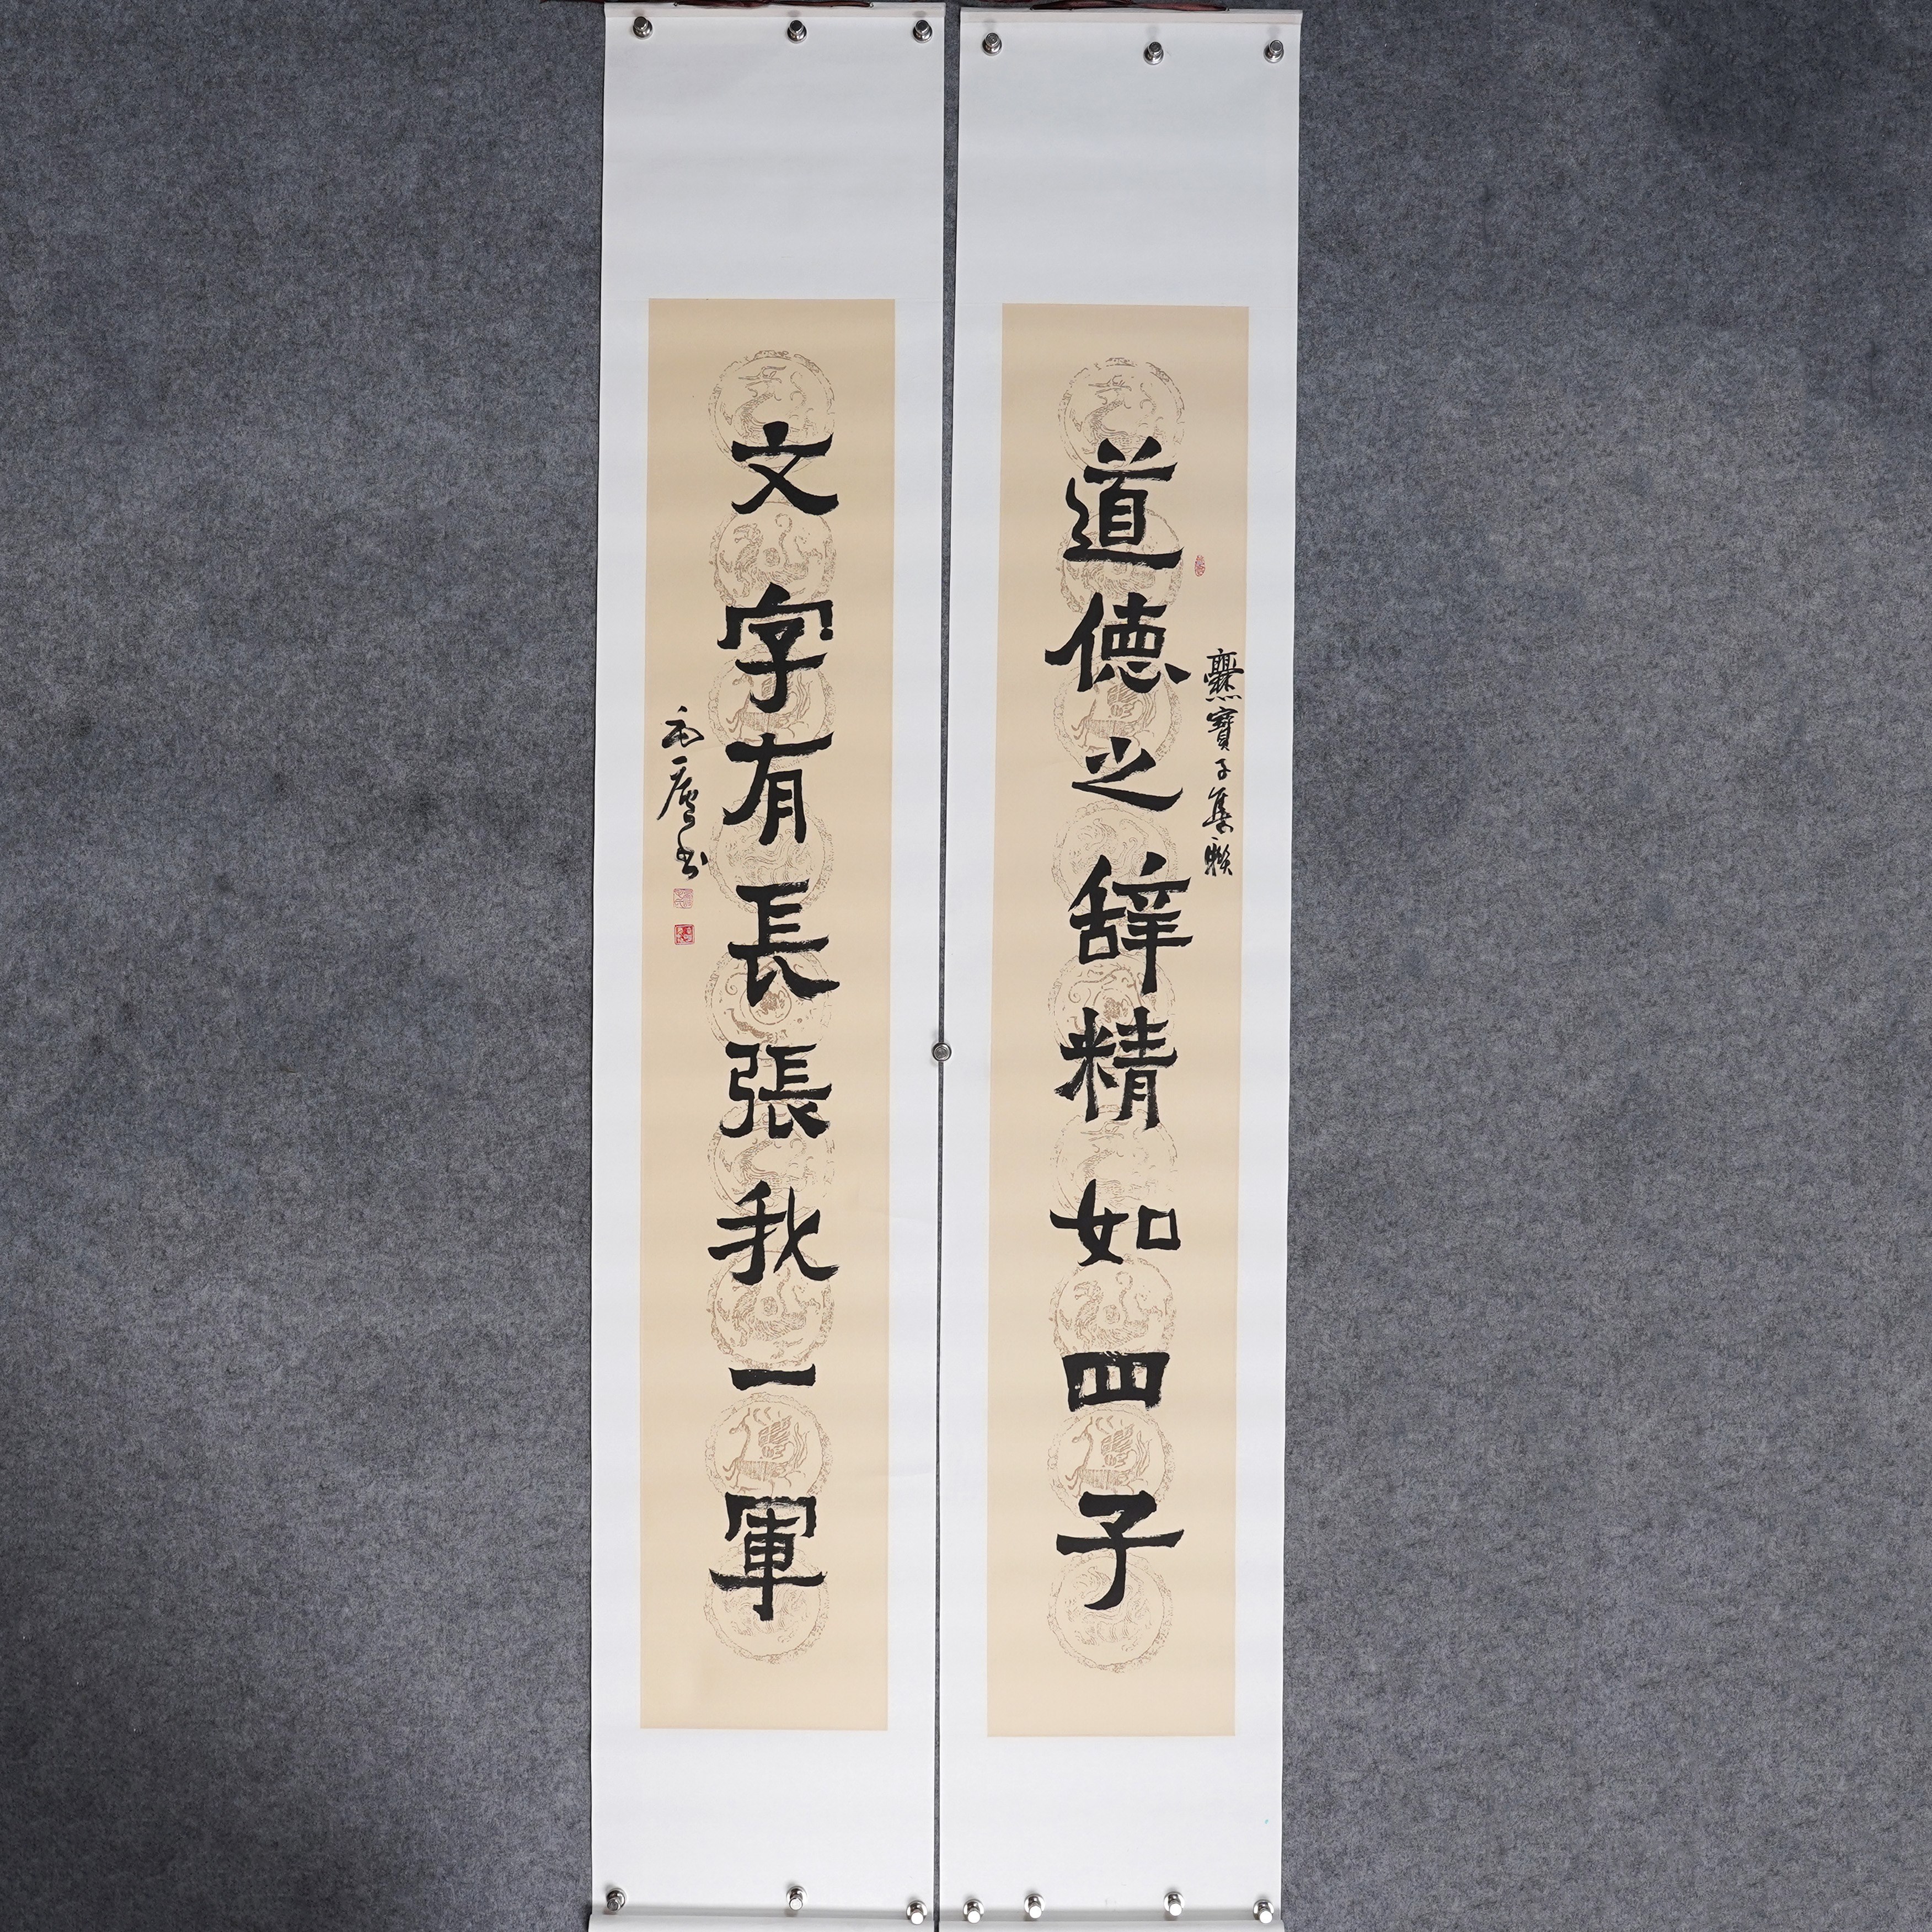 道德之辞精如四子
爨寶子集聯
文字有長張我一軍
書